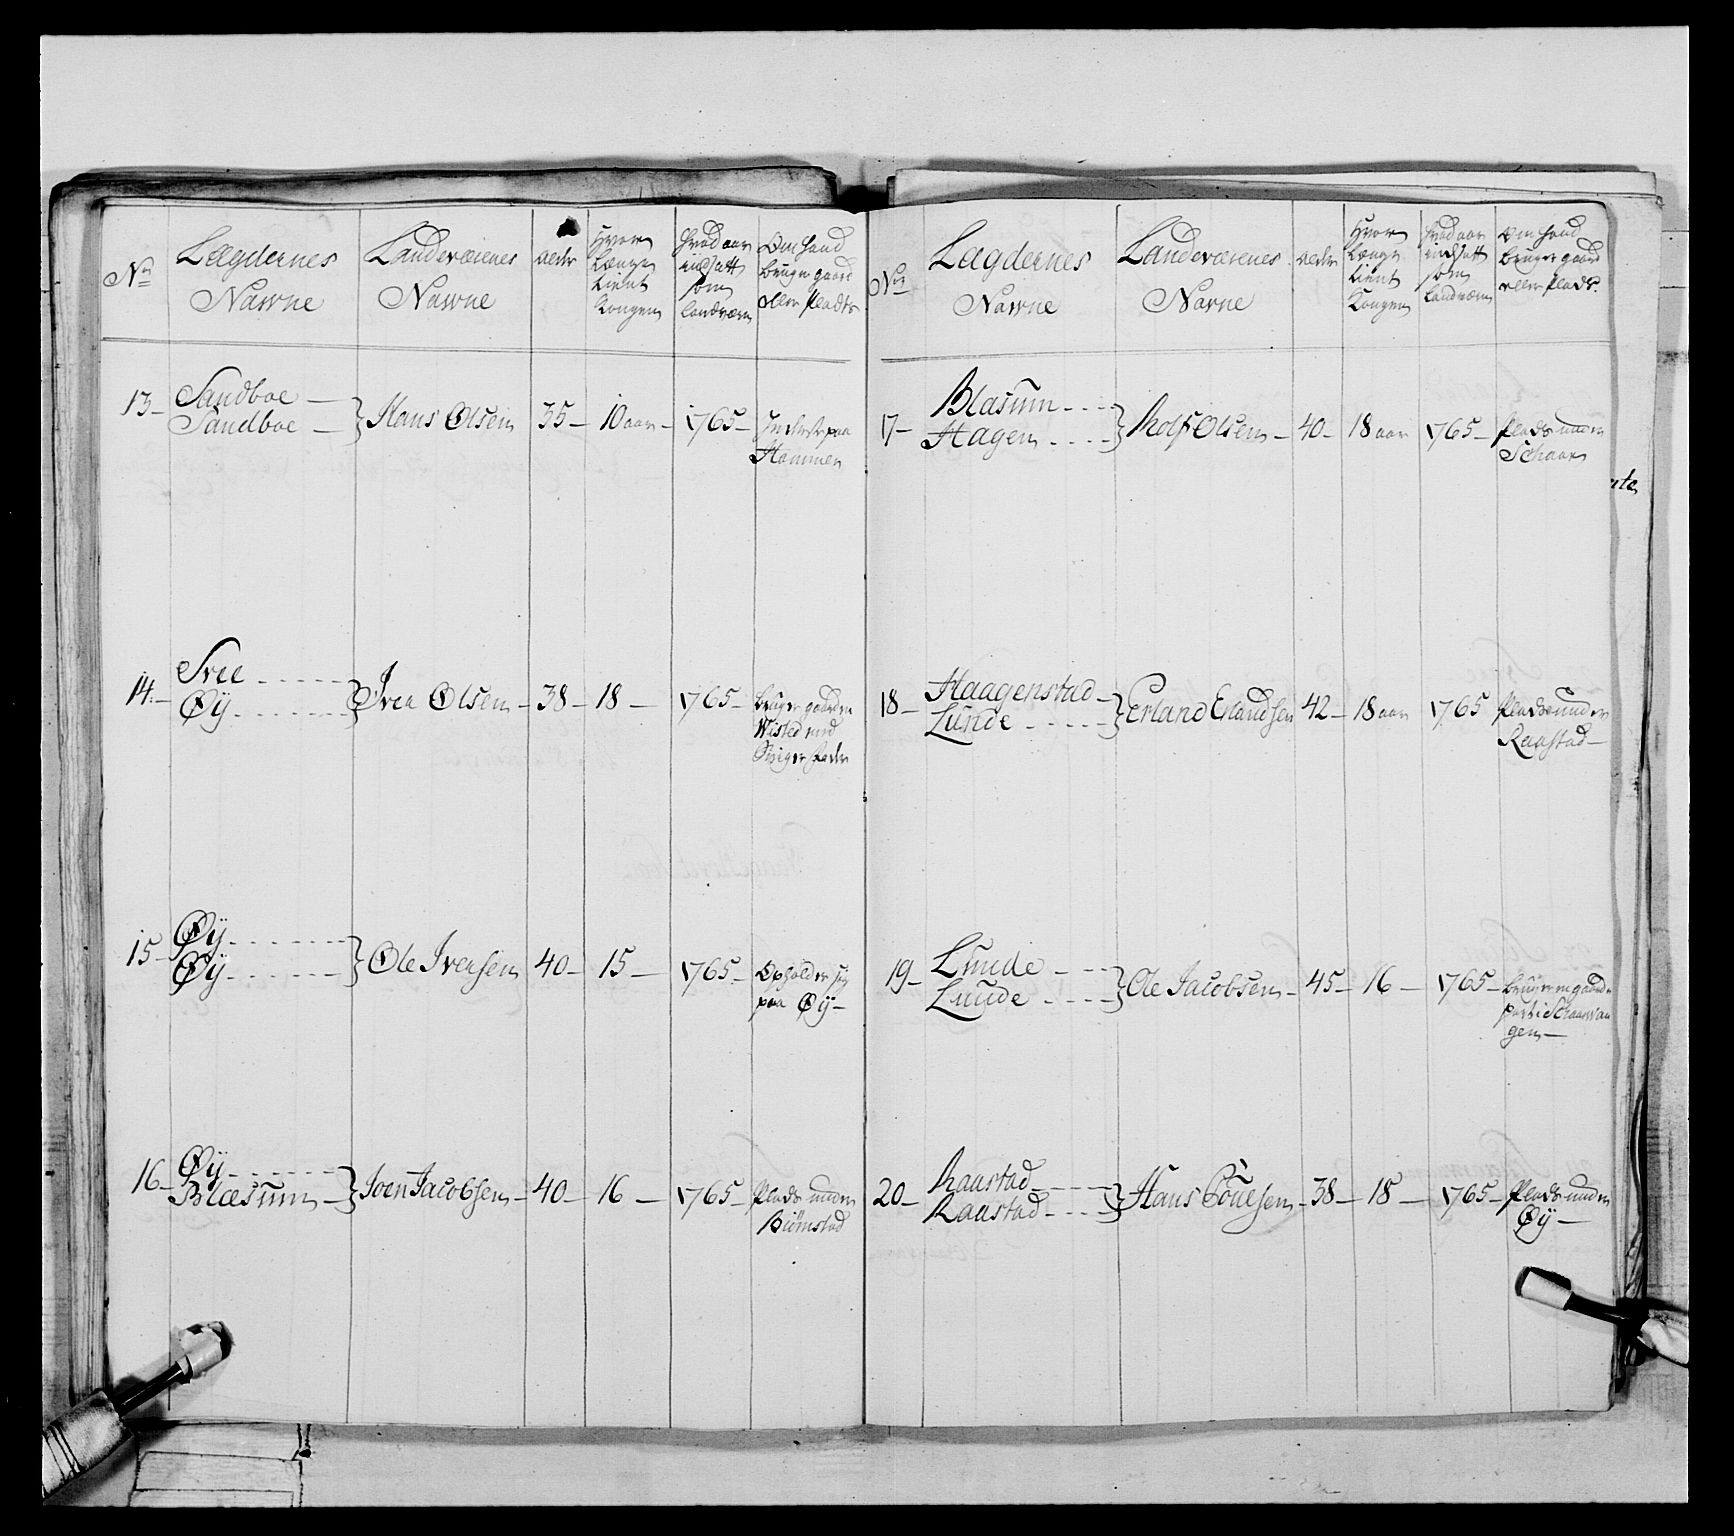 No
Lægdernes
Nawne
Landeværenes
Nawne
alder
Hvor
Længe
tient
Kongen
Hvad aar
indsatt
som
Landværn
Om hand
bruger gaard
eller Plads
13 – Sandboe –
Sandboe –
Hans Olsen
35 – 10 aar – 1765 –
Inderst paa
Hammer
14 – Svee
Øÿ
Iver Olsen – 38 – 18 – 1765 –
bruger gaarden
Wisted med
15 – Øÿ
Øÿ
Ole Iversen 40 – 15 – 1765 –
Opholder sig
paa Øÿ –
16 – Øÿ
Blæsum –
Joen Jacobsen – 40 – 16 – 1765 –
Plads under
Biørnstad
No
Lægdernes
Nawne
Landeværenes
Navne
alder
Hvor
Længe
tient
Kongen
Hvad aar
indsatt
som
Landværn
Om hand
bruger gaard
eller Plads.
17 – Blasum
Hagen
Rolf Olsen – 40 – 18 aar 1765 –
Plads under
Schaar
ite
18 – Haagenstad –
Lunde
Erland Erlandsen 42 – 18 aar 1765
Plads under
Raastad –
19 – Lunde
Lunde
Ole Jacobsen – 45 – 16 – 1765 –
bruger en gaard
part i Schaarvan
gen –
20 – Raastad
Raastad
Hans Povelsen – 38 – 18 – 1765 –
Plads under
Øÿ –